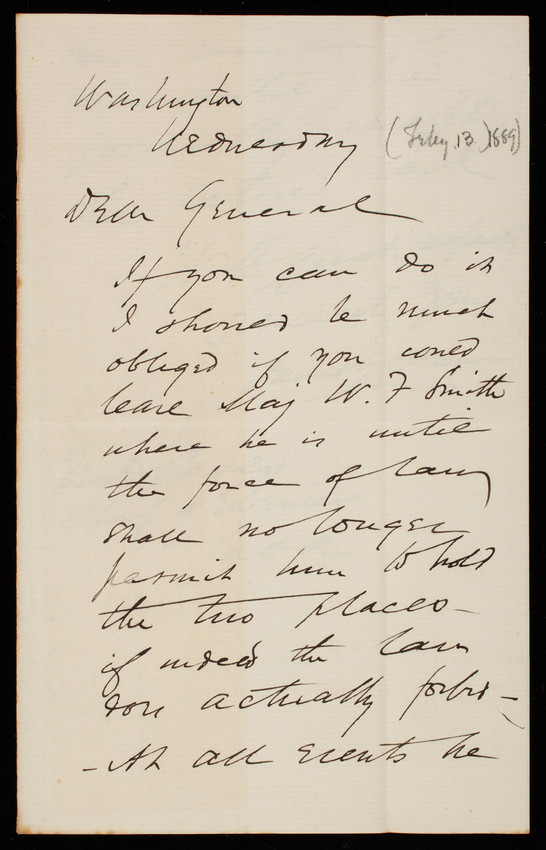 Washington
Wednesday (Feby. 13. 1889)
Dear General
If you can do it
I should be much
obliged if you could
leave Maj W. F Smith
where he is until
the force of law
shall no longer
permit him to hold
the two places -
if indeed the law
does actually forbid -
- At all events he